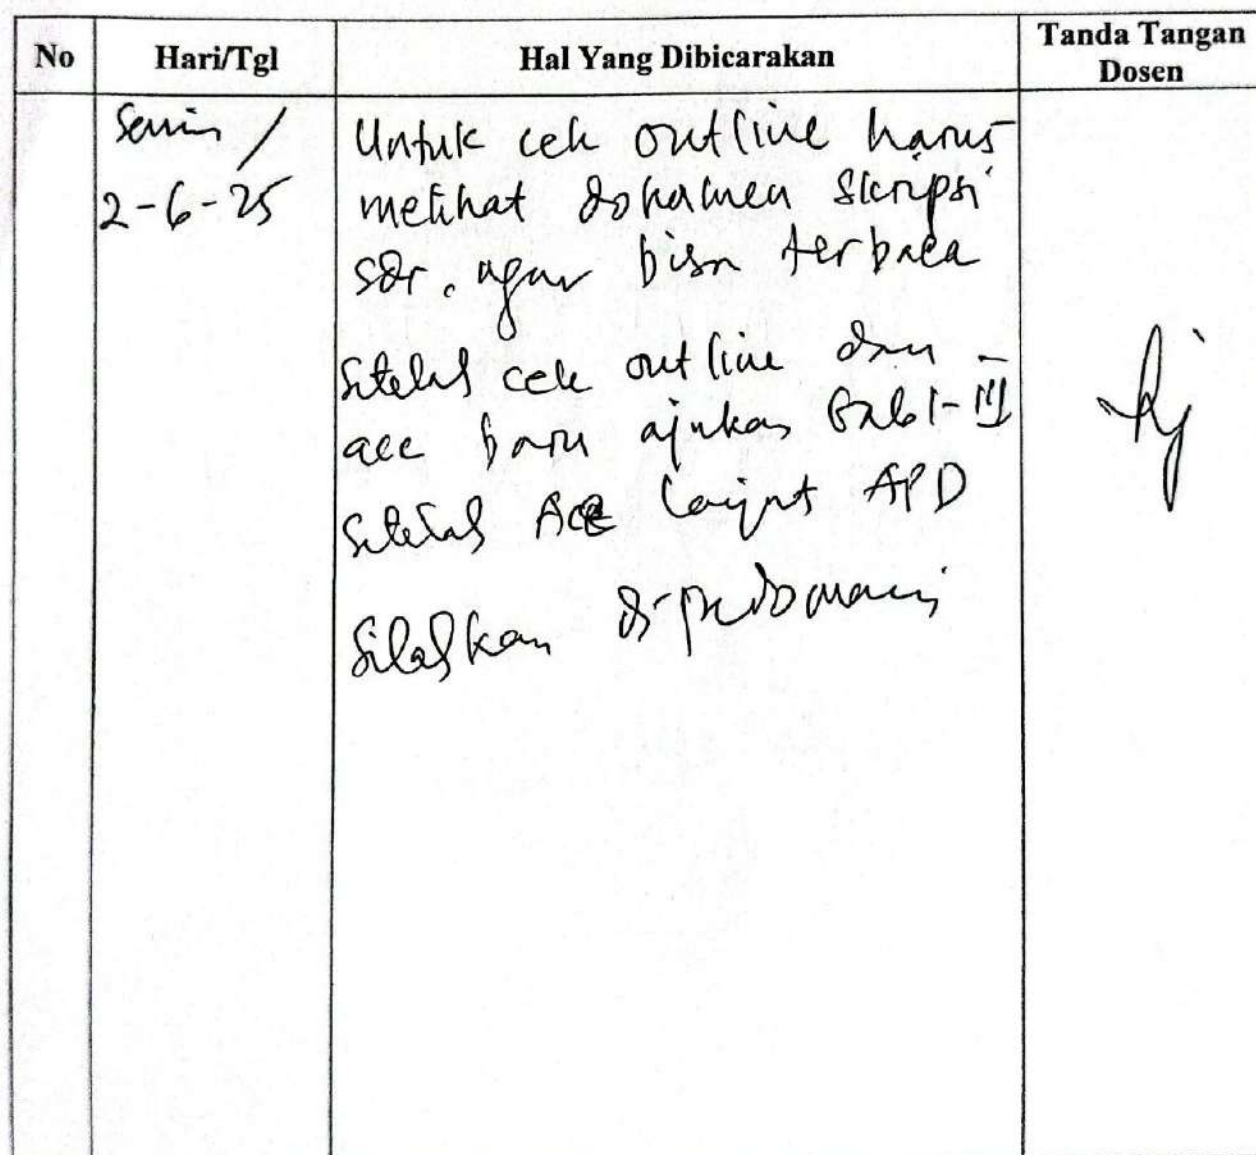 No
Hari/Tgl
Hal Yang Dibicarakan
Tanda Tangan
Dosen
Senin /
2-6-25
Untuk cek outline harus
melihat dokumen skripsi
sdr. agar bisa terbaca
Setelah cek outline dan
acc baru ajukan Bab I-III
Setelah Acc lanjut APD
Silahkan dipedomani